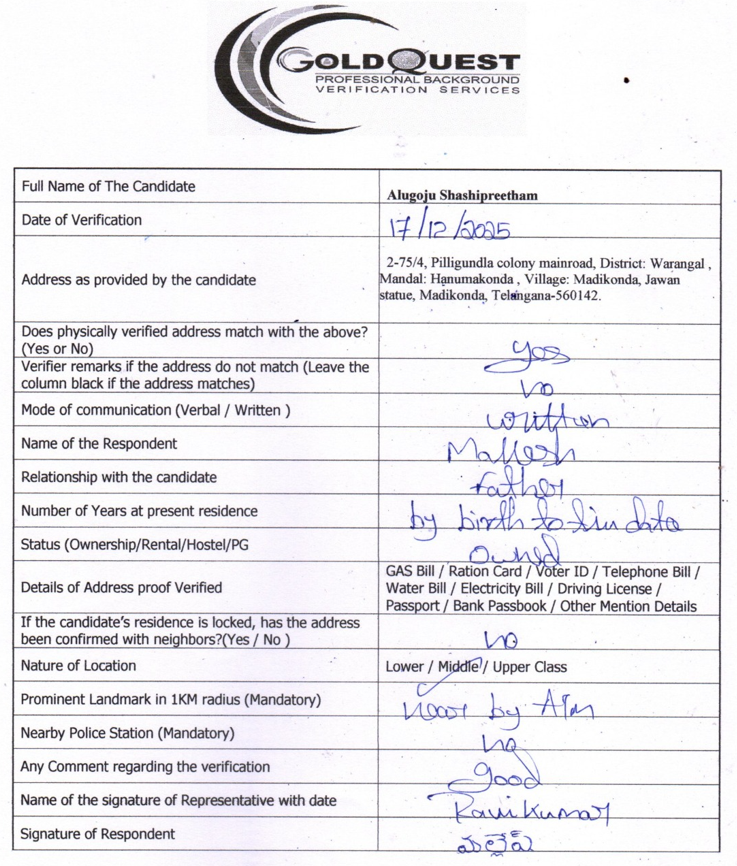 GOLDQUEST
PROFESSIONAL BACKGROUND
VERIFICATION SERVICES
Full Name of The Candidate
Alugoju Shashipreetham
Date of Verification
17/12/2025
Address as provided by the candidate
2-75/4, Pilligundla colony mainroad, District: Warangal ,
Mandal: Hanumakonda , Village: Madikonda, Jawan
statue, Madikonda, Telangana-560142.
Does physically verified address match with the above?
(Yes or No)
yes
Verifier remarks if the address do not match (Leave the
column black if the address matches)
no
Mode of communication (Verbal / Written )
written
Name of the Respondent
Mallesh
Relationship with the candidate
Father
Number of Years at present residence
by birth to date
Status (Ownership/Rental/Hostel/PG
Owned
Details of Address proof Verified
GAS Bill / Ration Card / Voter ID / Telephone Bill /
Water Bill / Electricity Bill / Driving License /
Passport / Bank Passbook / Other Mention Details
If the candidate's residence is locked, has the address
been confirmed with neighbors?(Yes / No )
no
Nature of Location
Lower / Middle / Upper Class
Prominent Landmark in 1KM radius (Mandatory)
near by
Nearby Police Station (Mandatory)
no
Any Comment regarding the verification
good
Name of the signature of Representative with date
Ravikumar
Signature of Respondent
మల్లేష్